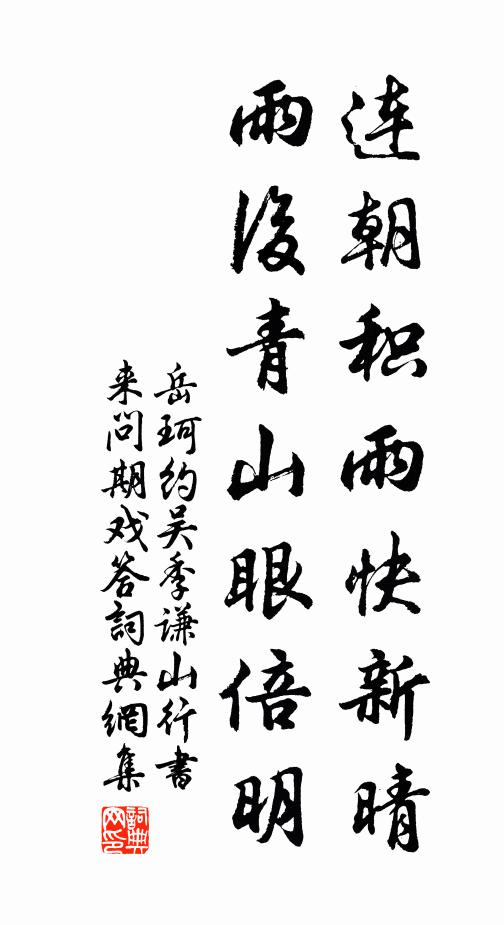 连朝积雨快新晴
雨後青山眼倍明
岳珂约吴季谦山行書
来问期戏答詞典網集
詞典
网印